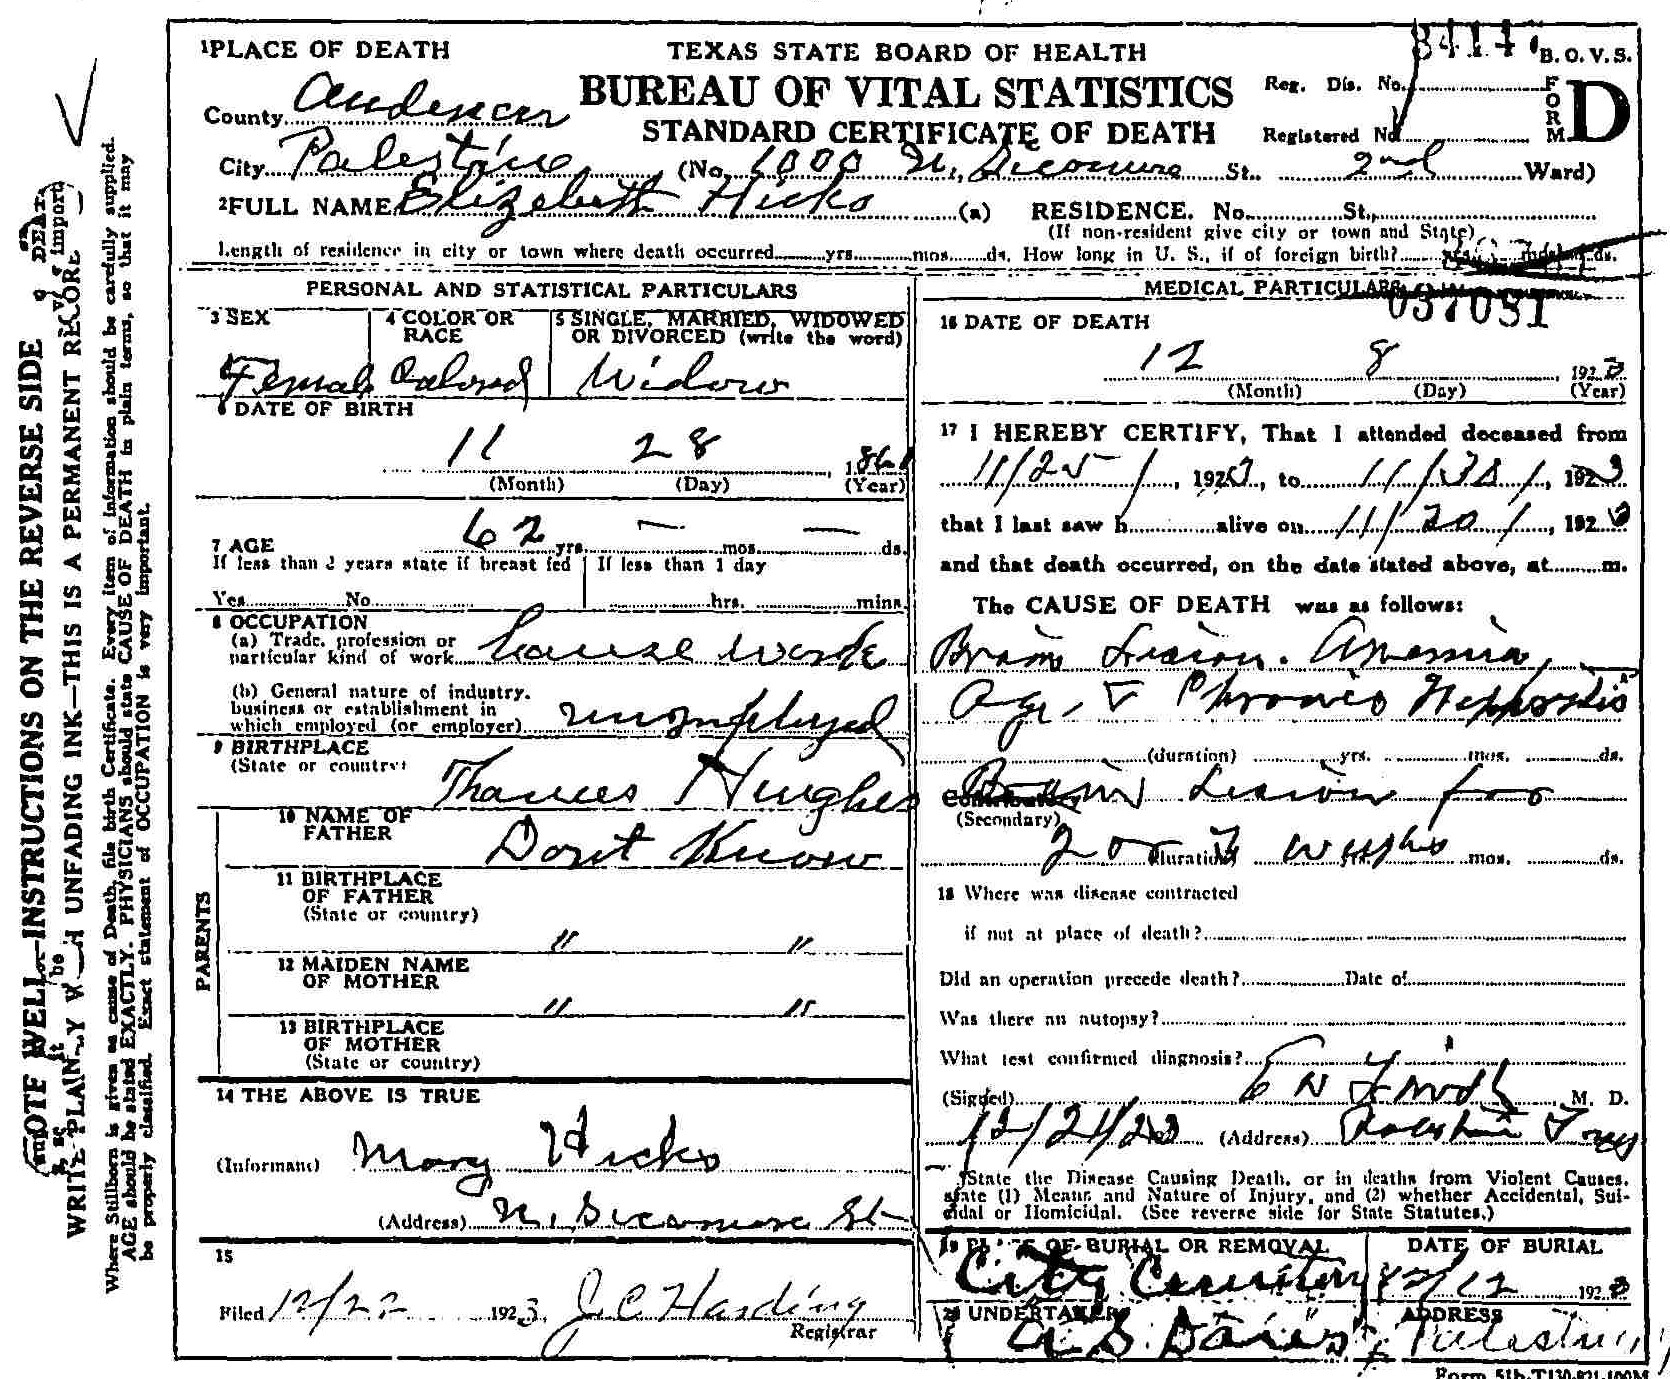 1 PLACE OF DEATH
TEXAS STATE BOARD OF HEALTH
B. O. V. S.
BUREAU OF VITAL STATISTICS
STANDARD CERTIFICATE OF DEATH
Reg. Dis. No.
Registered No.
FORM D
County Anderson
City Palestine (No. 1000 N. Sicomore St. 2nd Ward)
2 FULL NAME Elizebeth Hicks (a) RESIDENCE. No. St.,
(If non-resident give city or town and State)
Length of residence in city or town where death occurred yrs. mos. ds. How long in U. S., if of foreign birth? yrs. ds.
PERSONAL AND STATISTICAL PARTICULARS
3 SEX
Female
4 COLOR OR RACE
Colored
5 SINGLE, MARRIED, WIDOWED
OR DIVORCED (write the word)
Widow
6 DATE OF BIRTH
11 28 , 1861
(Month) (Day) (Year)
7 AGE 62 yrs. — mos. — ds.
If less than 2 years state if breast fed
If less than 1 day
Yes No
hrs. mins.
8 OCCUPATION
(a) Trade, profession or
particular kind of work house work
(b) General nature of industry.
business or establishment in
which employed (or employer) unomployed
9 BIRTHPLACE
(State or country) Hughes
PARENTS
10 NAME OF
FATHER Dont Know
11 BIRTHPLACE
OF FATHER
(State or country)
" "
12 MAIDEN NAME
OF MOTHER
" "
13 BIRTHPLACE
OF MOTHER
(State or country)
14 THE ABOVE IS TRUE
(Informant) Mary Hicks
(Address) N. Sicamore St
15
Filed 12/22 1923 J.C. Harding
Registrar
MEDICAL PARTICULARS
037031
16 DATE OF DEATH
12 8 , 1923
(Month) (Day) (Year)
17 I HEREBY CERTIFY, That I attended deceased from
11/25/, 1923, to 11/30/, 1923
that I last saw h alive on 11/30/, 1923
and that death occurred, on the date stated above, at m.
The CAUSE OF DEATH was as follows:
Brain Lesion. Anemia,
Age, & Chronic Nephritis
(duration) yrs. mos. ds.
Contributory Brain Lesion for
(Secondary)
2 or 3 (duration) mos. ds.
18 Where was disease contracted
if not at place of death?
Did an operation precede death? Date of
Was there an autopsy?
What test confirmed diagnosis?
(Signed) M. D.
12/21/23 (Address) Palestine Texas
State the Disease Causing Death, or in deaths from Violent Causes,
state (1) Means and Nature of Injury, and (2) whether Accidental, Sui-
cidal or Homicidal. (See reverse side for State Statutes.)
19 PLACE OF BURIAL OR REMOVAL
City Cemetery
DATE OF BURIAL
12/12 1923
20 UNDERTAKER
Davis
ADDRESS
Palestine
NOTE WELL—INSTRUCTIONS ON THE REVERSE SIDE
WRITE PLAINLY WITH UNFADING INK—THIS IS A PERMANENT RECORD
Where Stillborn is given as cause of Death, file birth Certificate. Every item of information should be carefully supplied.
AGE should be stated EXACTLY. PHYSICIANS should state CAUSE OF DEATH in plain terms, so that it may
be properly classified. Exact statement of OCCUPATION is very important.